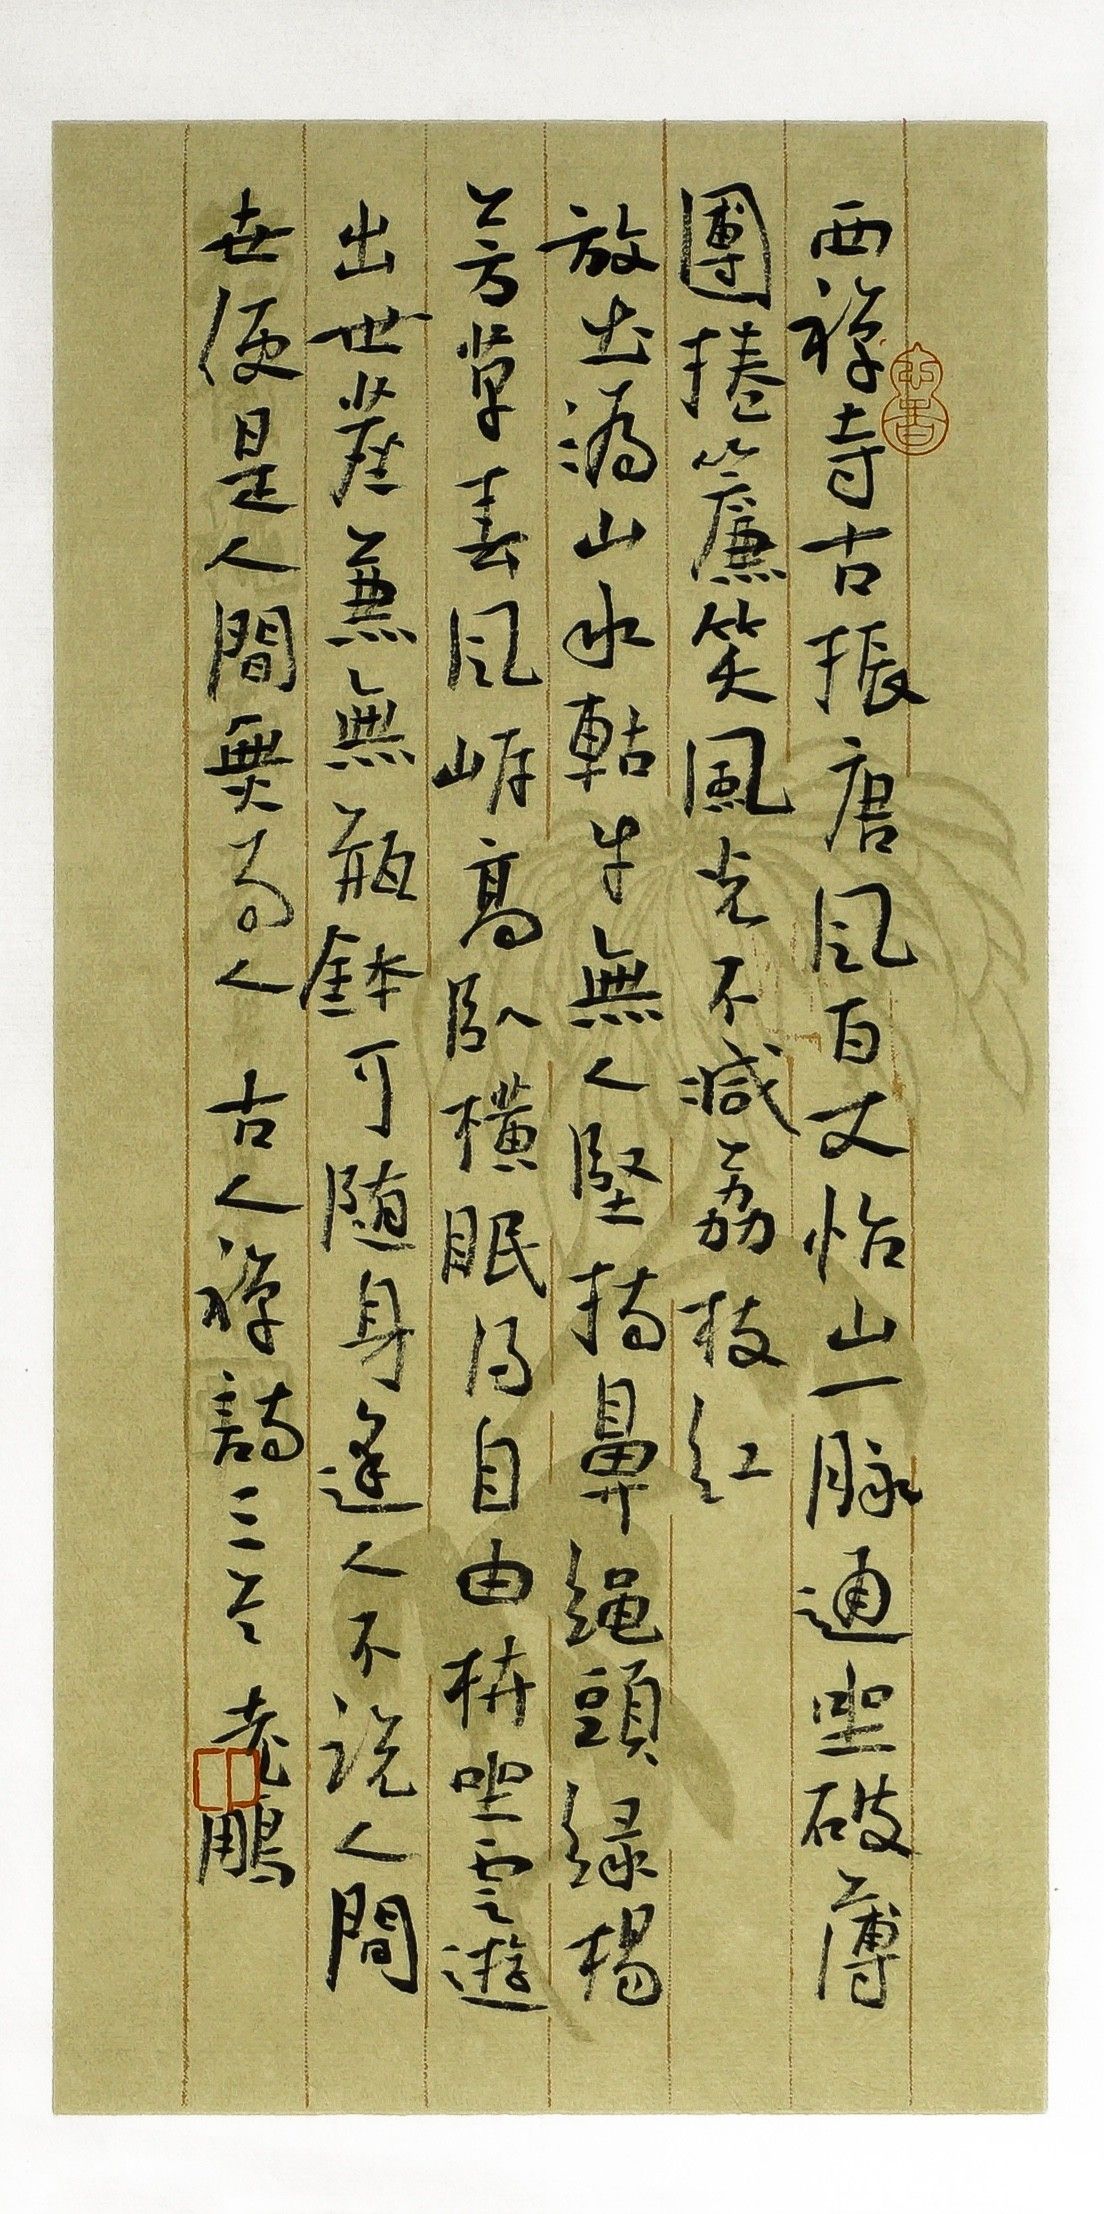 西禅寺古振唐風百丈怡山一脉通坐破蒲
團捲簾笑風光不減荔枝紅
放出溈山水牯牛無人堅持鼻繩頭緑楊
芳草春風岸高臥横眠得自由耕坐雲遊
出世塵兼無瓶鉢可随身逢人不説人間
世便是人間無事人 古人禅詩三首 老鵬